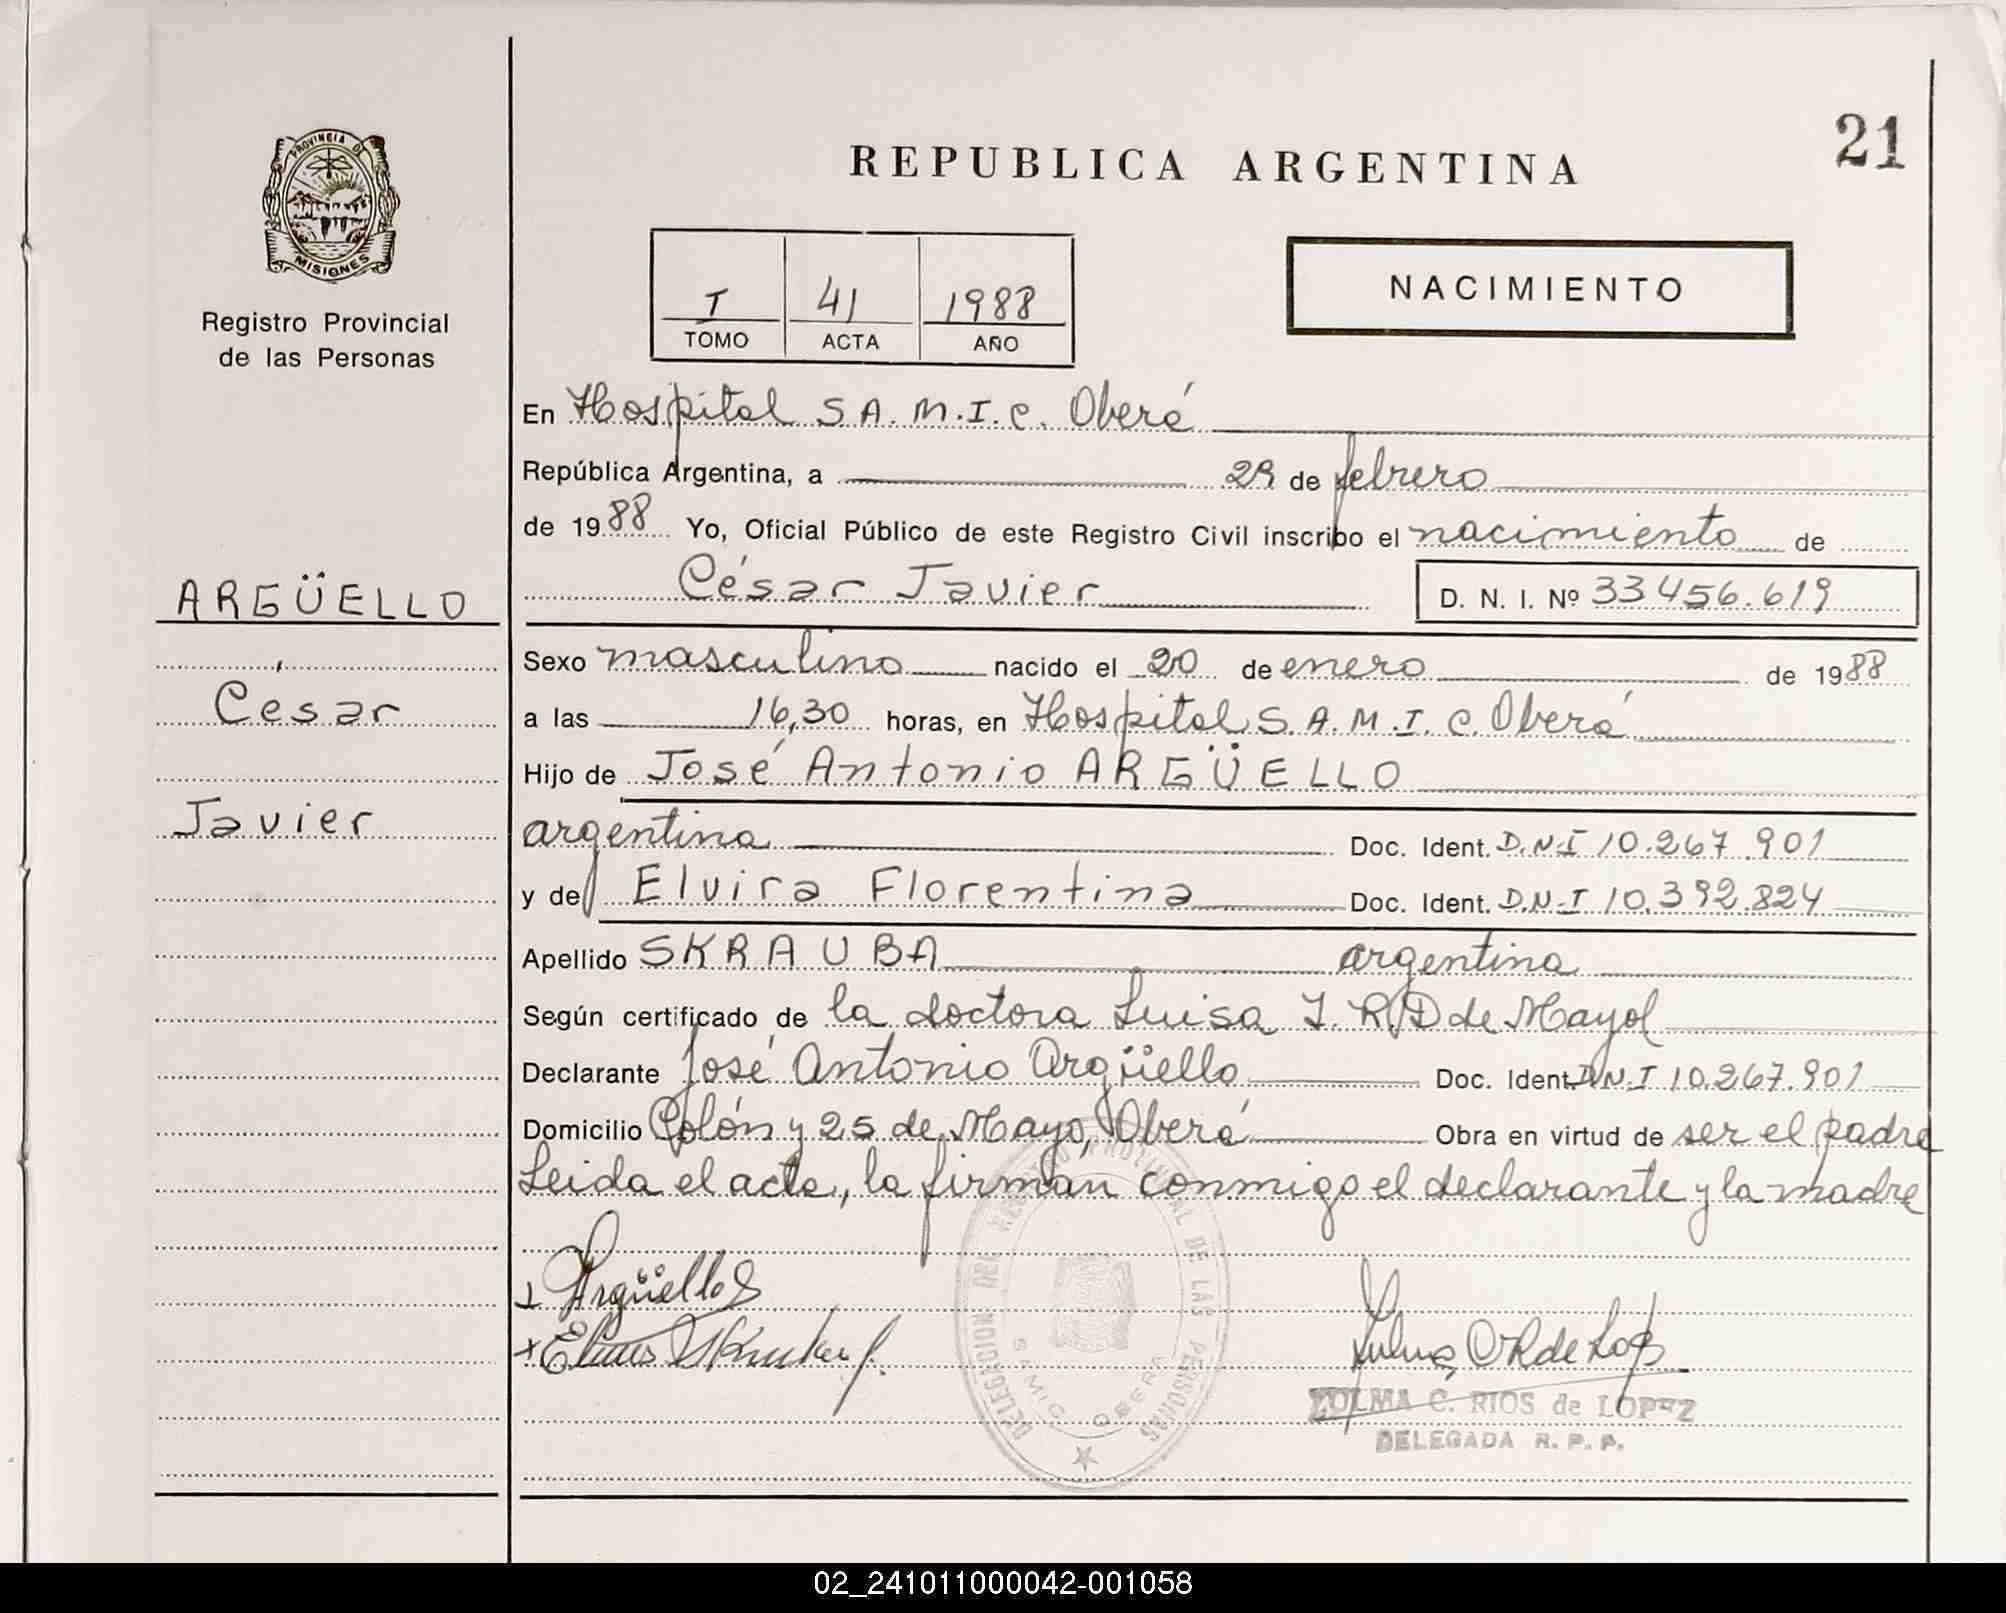 21
REPUBLICA ARGENTINA
PROVINCIA DE
MISIONES
Registro Provincial
de las Personas
I 41 1988
TOMO ACTA AÑO
NACIMIENTO
En Hospital S.A.M.I.C. Oberá
República Argentina, a 29 de febrero
de 1988 Yo, Oficial Público de este Registro Civil inscribo el nacimiento de
César Javier D. N. I. Nº 33456.619
ARGÜELLO
César
Javier
Sexo masculino nacido el 20 de enero de 1988
a las 16,30 horas, en Hospital S.A.M.I.C. Oberá
Hijo de José Antonio ARGÜELLO
argentina Doc. Ident. D.N.I 10.267.901
y de Elvira Florentina Doc. Ident. D.N.I 10.392.824
Apellido SKRAUBA argentina
Según certificado de la doctora Luisa I. R. D de Mayol
Declarante José Antonio Argüello Doc. Ident. D.N.I 10.267.901
Domicilio Colón y 25 de Mayo, Oberá Obra en virtud de ser el padre
Leida el acta, la firman conmigo el declarante y la madre
Argüello
DELEGACION DEL REGISTRO PROVINCIAL DE LAS PERSONAS
SAMIC OBERA
ZULMA C. RIOS de LOPEZ
DELEGADA R. P. P.
02_241011000042-001058